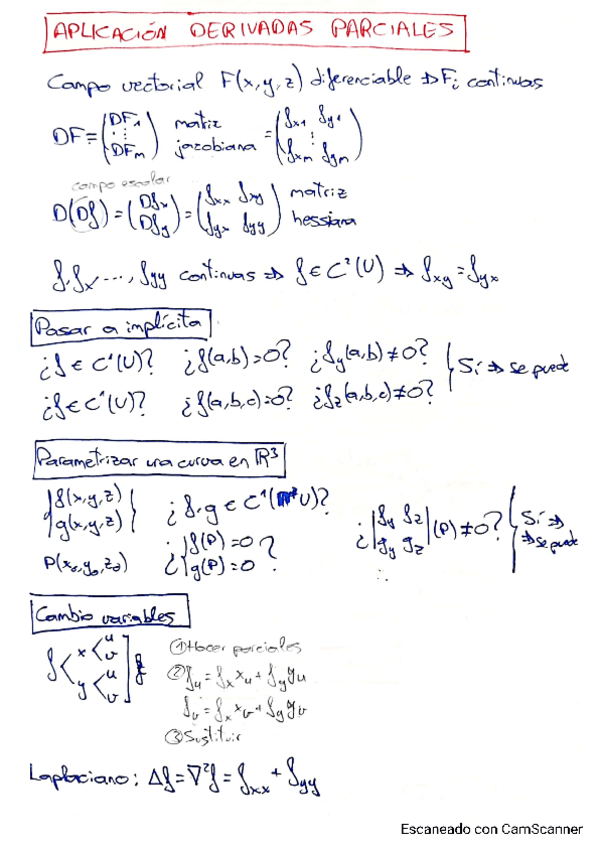 APLICACIÓN DERIVADAS PARCIALES
Campo vectorial F(x,y,z) diferenciable ⇒ Fi continuas
DF = (DF1 ⋮ DFm) matriz jacobiana = (fx1 fy1 ⋮ fxm fym)
campo escalar
D(Df) = (Dfx Dfy) = (fxx fxy fyx fyy) matriz hessiana
f, fx, ..., fyy continuas ⇒ f ∈ C²(U) ⇒ fxy = fyx
Pasar a implícita
¿f ∈ C¹(U)? ¿f(a,b)=0? ¿fy(a,b)≠0?
¿f ∈ C¹(U)? ¿f(a,b,c)=0? ¿fz(a,b,c)≠0?
Sí ⇒ se puede
Parametrizar una curva en ℝ³
f(x,y,z)
g(x,y,z)
P(x0,y0,z0)
¿f,g ∈ C¹(U)?
¿f(P)=0
g(P)=0?
¿|fy fz gy gz|(P)≠0?
Sí ⇒
⇒ se puede
Cambio variables
f < x < u v
y < u v
① Hacer parciales
② fu = fx xu + fy yu
fv = fx xv + fy yv
③ Sustituir
Laplaciano: Δf = ∇²f = fxx + fyy
Escaneado con CamScanner